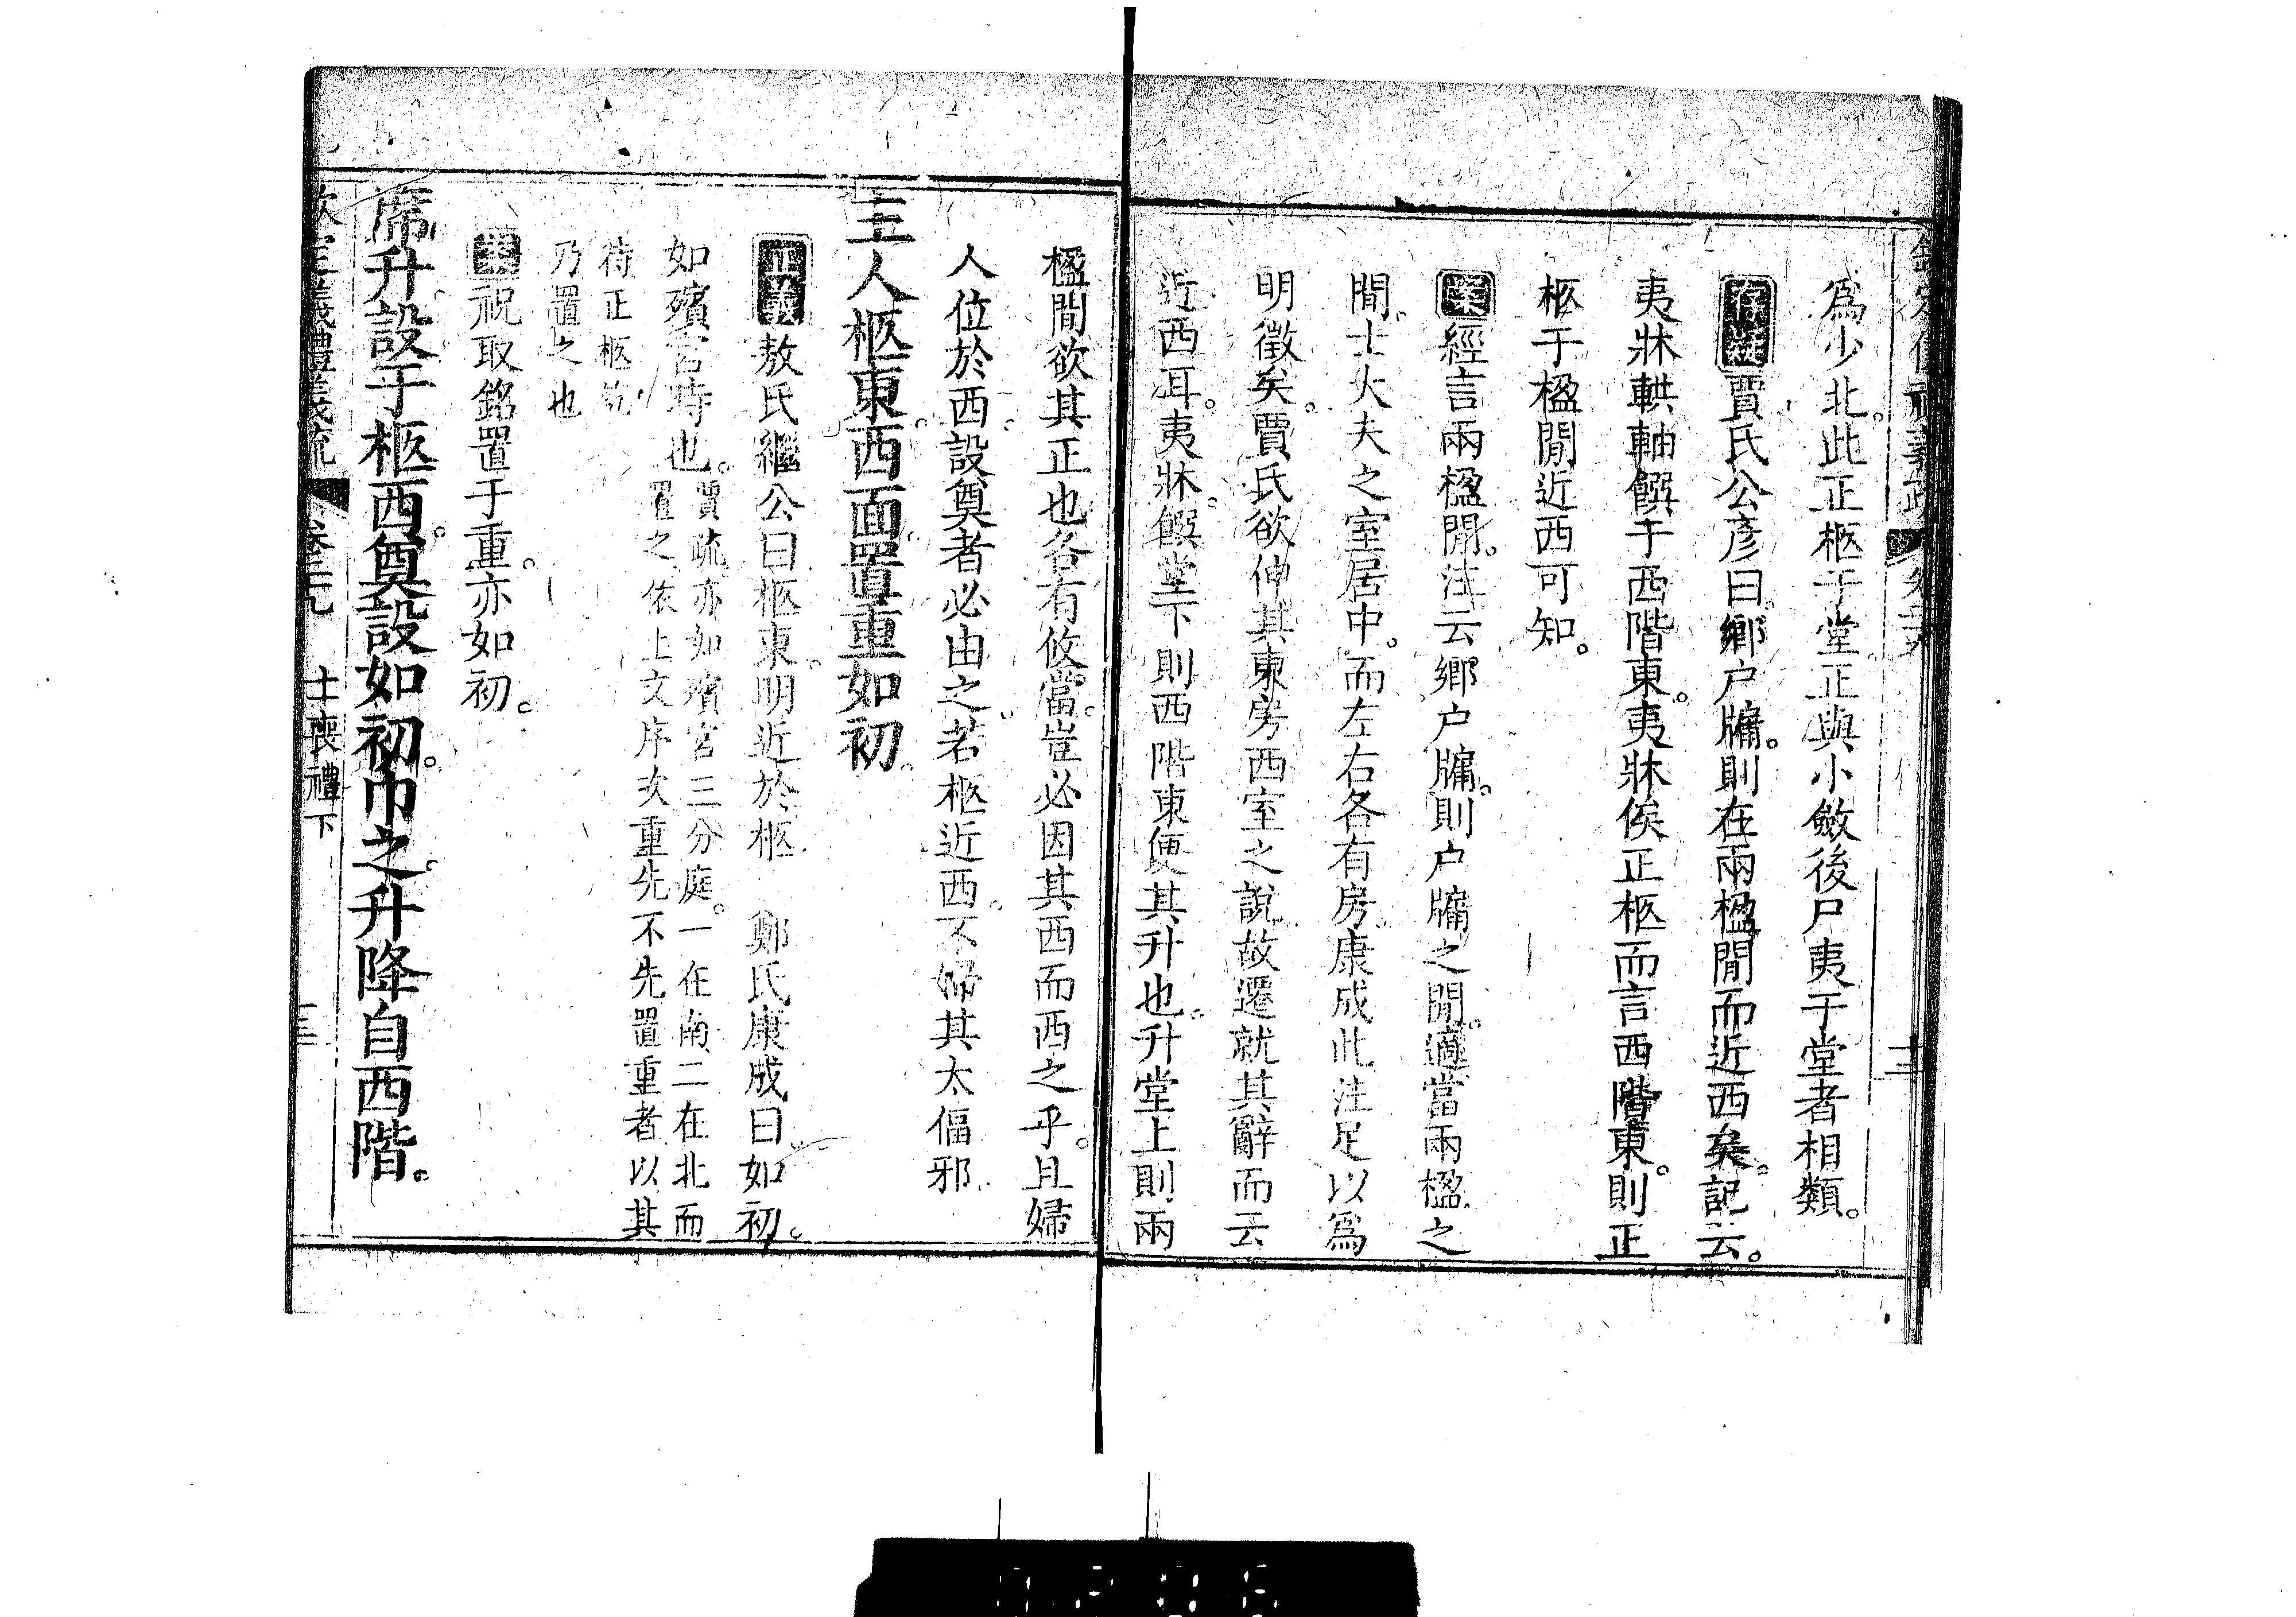 欽定儀禮義疏 卷三十九 十三
爲少北。此正柩于堂。正與小斂後尸夷于堂者相類。
存疑 賈氏公彥曰。鄉户牖。則在兩楹閒而近西矣。記云。
夷牀輁軸饌于西階東。夷牀俟正柩而言西階東。則正
柩于楹閒近西可知。
案 經言兩楹閒。注云鄉户牖。則户牖之閒。適當兩楹之
閒。士大夫之室居中。而左右各有房。康成此注足以爲
明徵矣。賈氏欲伸其東房西室之說。故遷就其辭而云
近西耳。夷牀。饌堂下則西階東便其升也。升堂上則兩
楹閒欲其正也。各有攸當。豈必因其西而西之乎。且婦
人位於西。設奠者必由之。若柩近西。不婦其太偪邪
主人柩東。西面。置重如初。
正義 敖氏繼公曰柩東。明近於柩 鄭氏康成曰。如初。
如殯宮時也。賈疏亦如殯宮三分庭。一在南二在北而
置之依上文序次重先不先置重者以其
待正柩訖
乃置之也
案 祝取銘置于重。亦如初。
席升。設于柩西。奠設如初。巾之。升降自西階。
欽定儀禮義疏 卷三十九 士喪禮下 十三